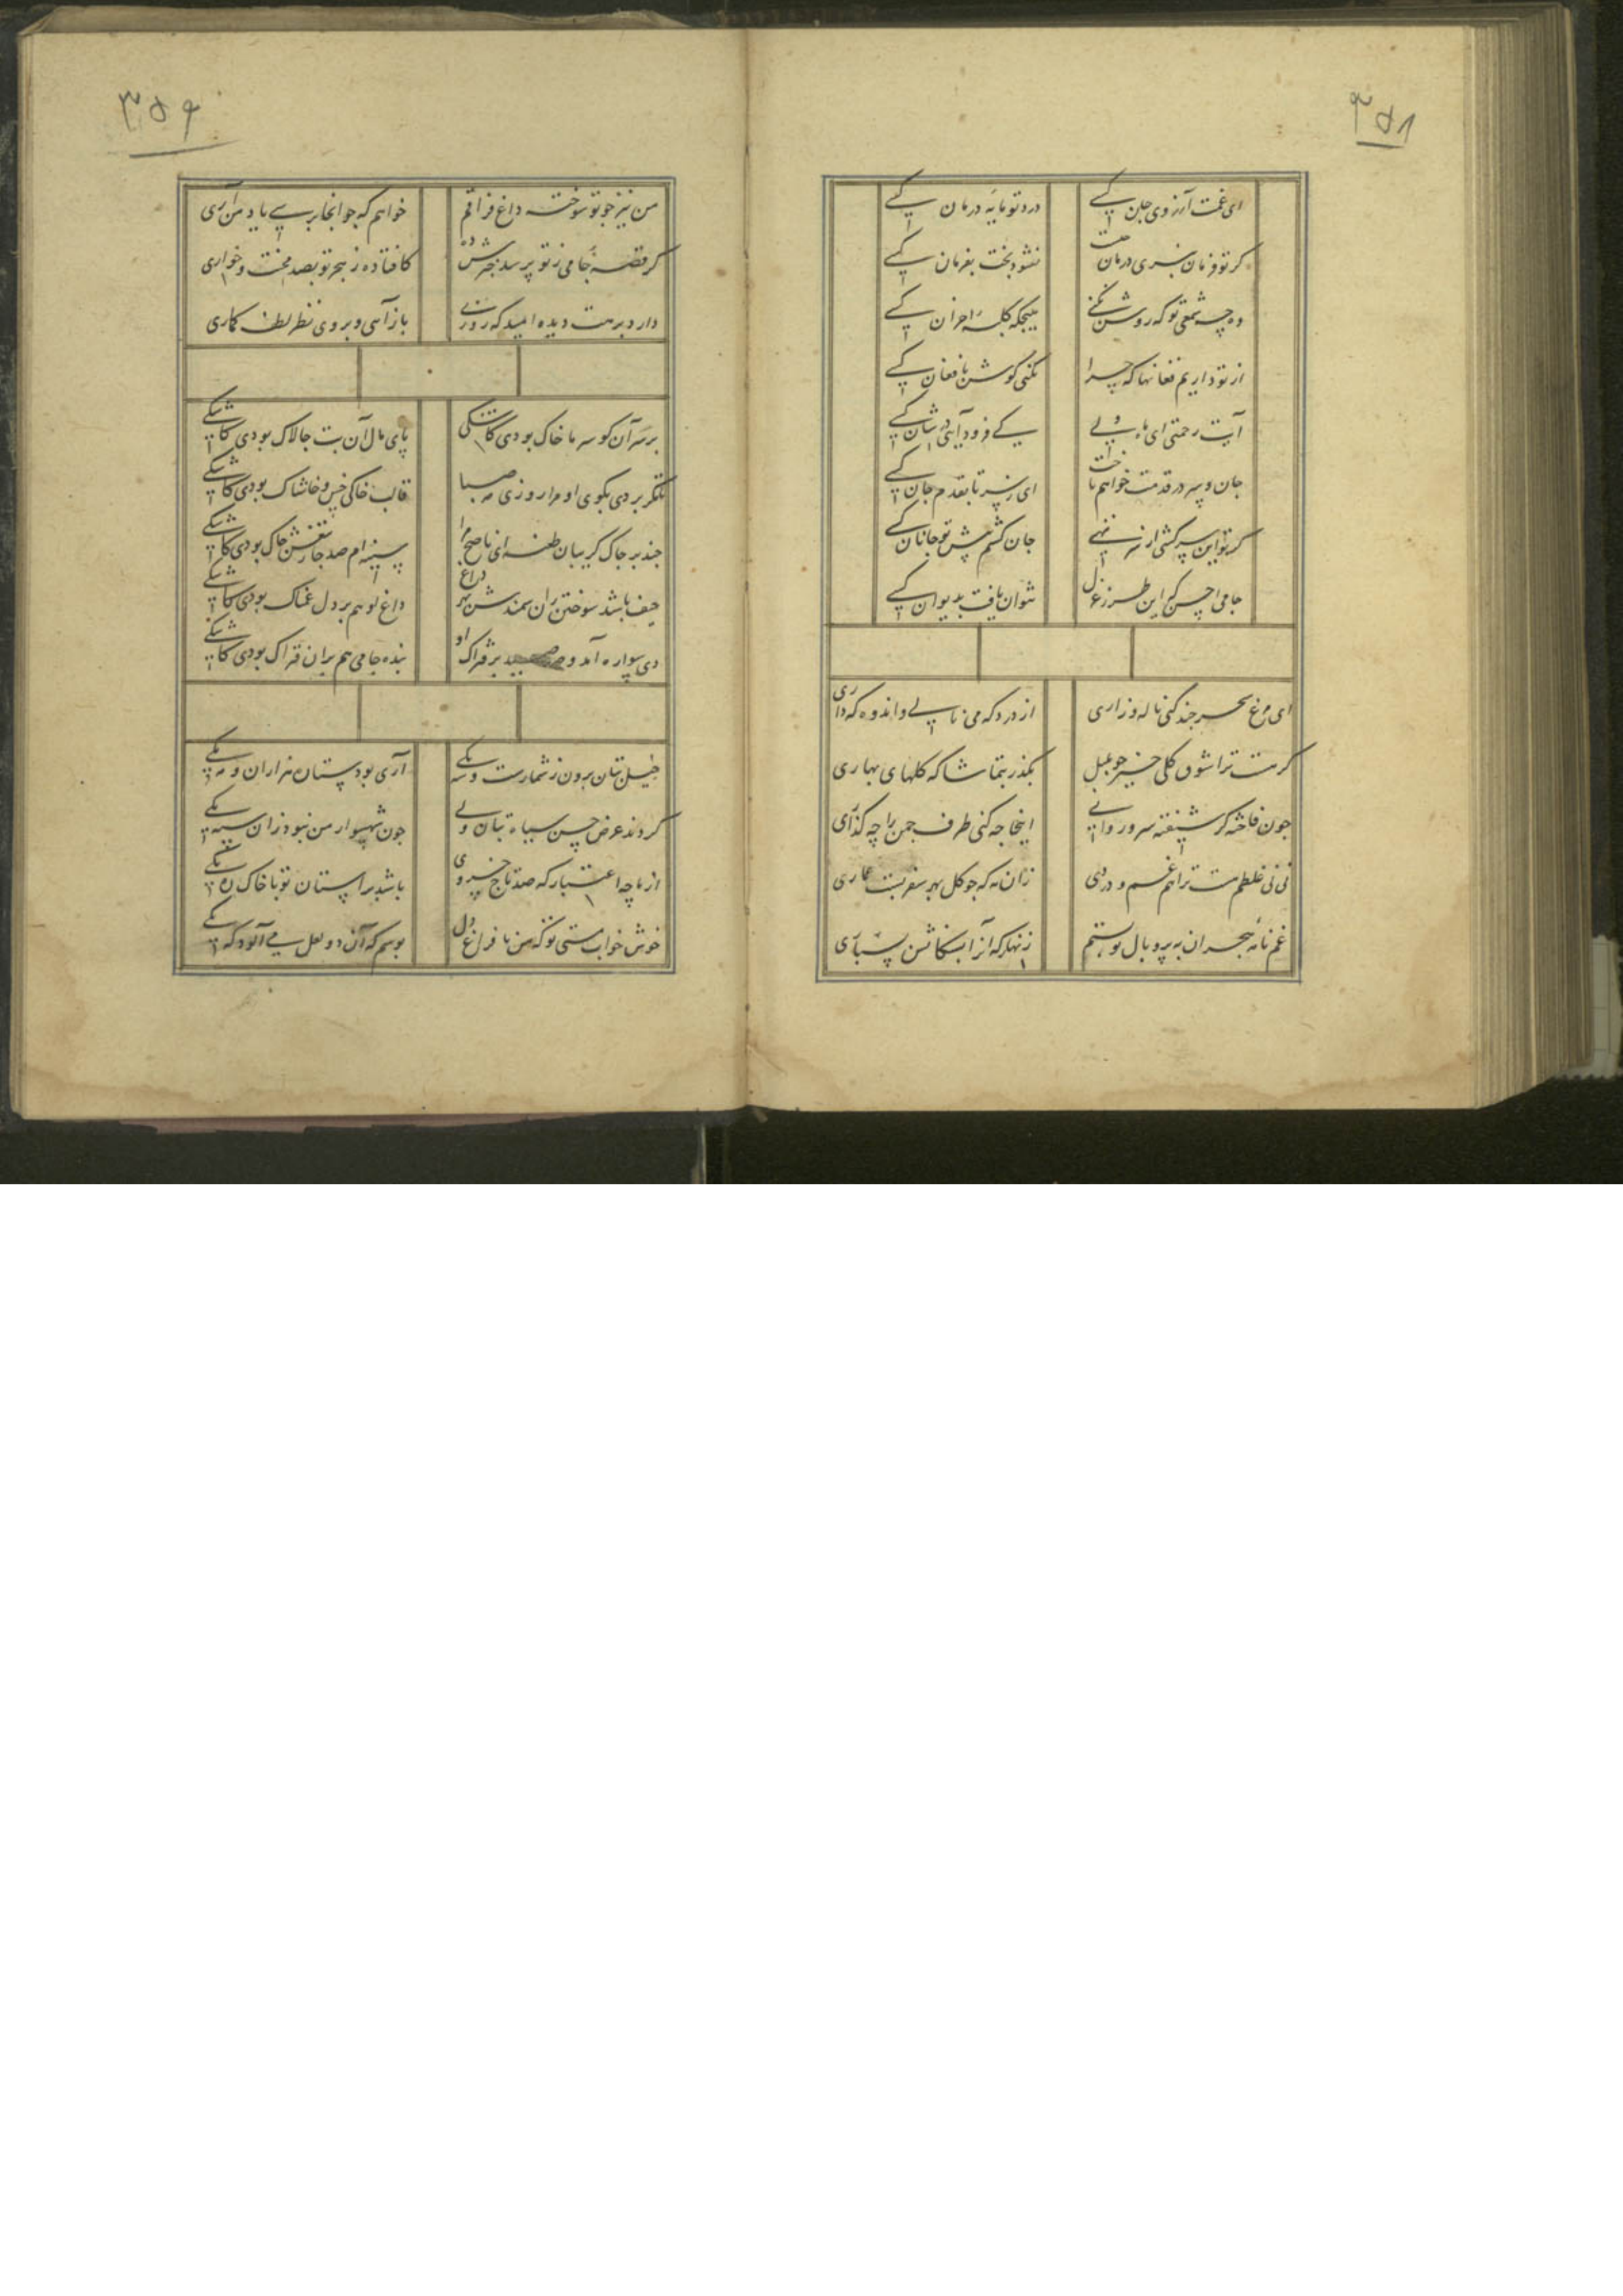 ۳۵۸
ای غمت آرزوی جان کسی
درد تو مایه درمان کسی
کر تو فرمان نبری درمان
نشود بخت بفرمان کسی
وه چه شمعی تو که روشن نکنی
هیچکه کلبه احزان کسی
از تو داریم فغانها که چرا
نکنی کوش بافغان کسی
آیت رحمتی ای ماه ولی
کی فرود آیی در شان کسی
جان و سر در قدمت خواهم باخت
ای ز سر تا بقدم جان کسی
کر تو این سرکشی از سر ننهی
جان کشم پیش تو جانان کسی
جامی احسن که این طرز غزل
نتوان یافت بدیوان کسی
ای مرغ سحر چند کنی ناله و زاری
از درد که می نالی و اندوه که داری
کر هست ترا شوق کلی خیز چو بلبل
بکذر بتماشا که کلهای بهاری
چون فاخته کر شیفته سرو روانی
اینجا چه کنی طرف چمن را چه کذاری
نی نی غلطم هست ترا هم غم و دردی
زان مه که چو کل بهر سفر بست عماری
غم نامه هجران به پر و بال تو بستم
زنهار که آنرا بسکانش بسپاری
۳۵۹
من نیز چو تو سوخته داغ فراقم
خواهم که چو آنجا برسی یاد من آری
کر قصه جامی ز تو پرسد خبرش ده
کافتاده ز هجر تو بصد محنت و خواری
دارد برهت دیده امید که روزی
باز آیی و بر وی نظر لطف کماری
بر سر آن کو سر ما خاک بودی کاشکی
پای مال آن بت چالاک بودی کاشکی
بردی بکوی او مرا روزی صبا
قالب خاکی خس و خاشاک بودی کاشکی
چند بر چاک کریبان طعنه ای ناصح مرا
سینه ام صد جا ز تیغش چاک بودی کاشکی
حیف باشد سوختن ران سمندش بهر داغ
داغ او هم بر دل غمناک بودی کاشکی
دی سواره آمد و صید بر فتراک او
بنده جامی هم بران فتراک بودی کاشکی
خیل بتان برون ز شمارست و مه یکی
آری بود ستاره هزاران و مه یکی
کردند عرض حسن سپاه بتان ولی
چون شهسوار من نبود زان سپه یکی
از ما چه اعتبار که صد تاج خسروی
باشد بر آستان تو با خاک ره یکی
خوش خواب مستی تو که من با فراغ دل
بوسم که آن دو لعل می آلود که یکی